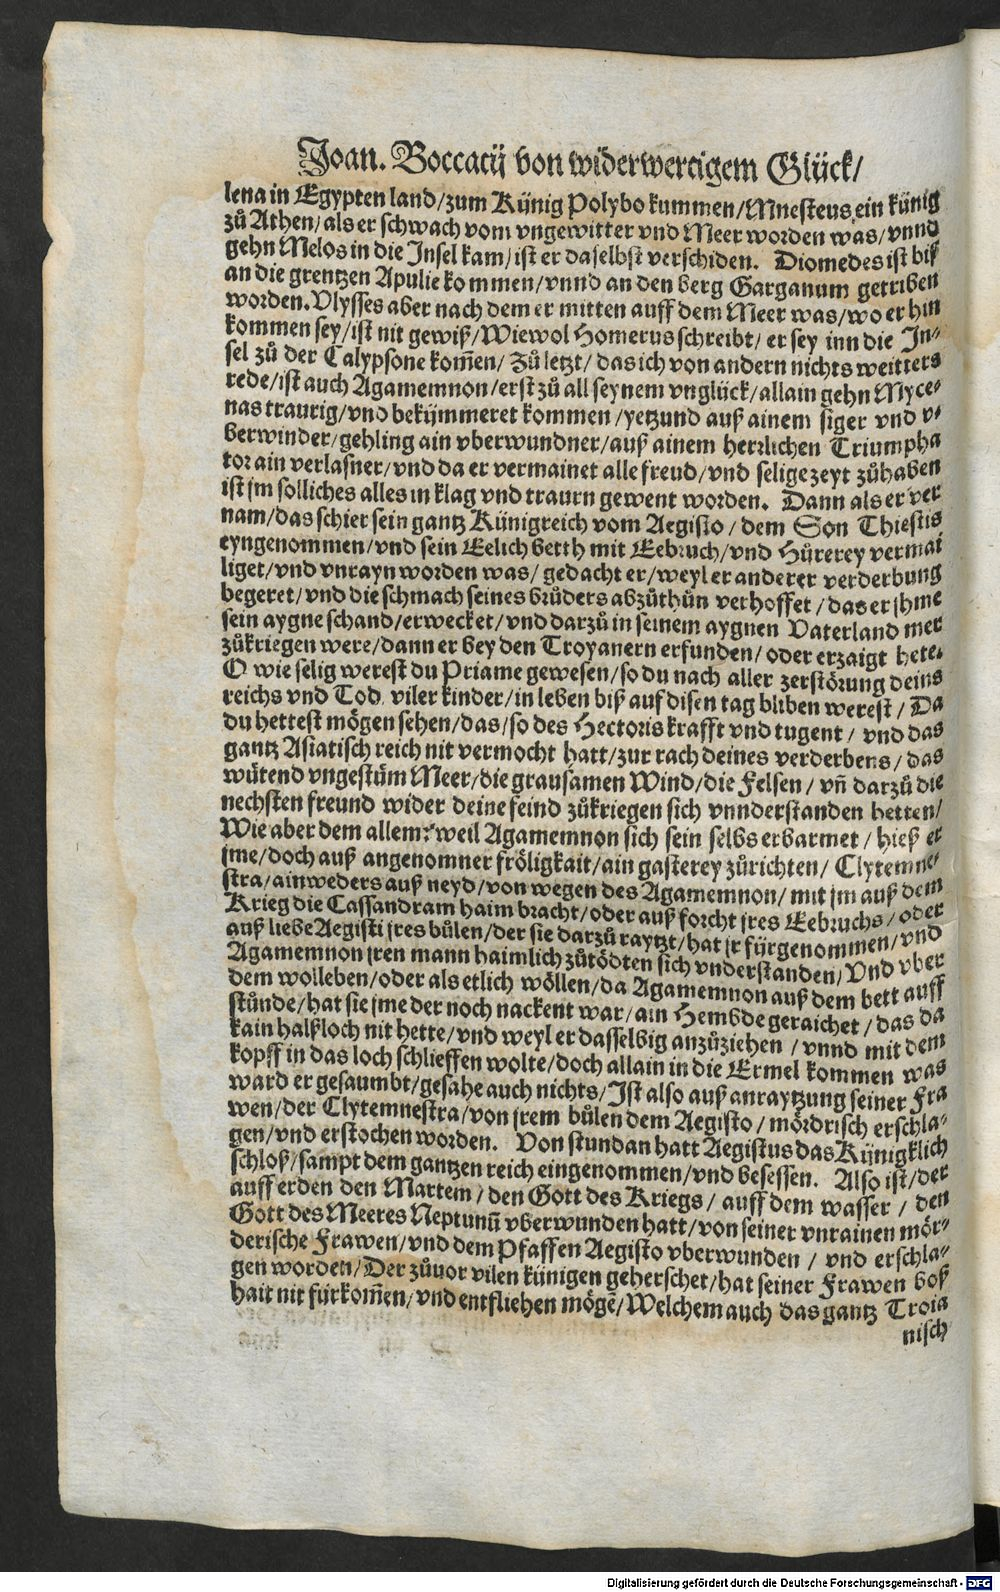 Joan. Boccatij von widerwertigem Glück/
lena in Egypten land/zum Künig Polybo kummen/Mnesteus ein künig
zů Athen/als er schwach vom vngewitter vnd Meer worden was/vnnd
gehn Melos in die Insel kam/ist er daselbst verschiden. Diomedes ist biß
an die grentzen Apulie kommen/vnnd an den berg Garganum getriben
worden. Vlysses aber nach dem er mitten auff dem Meer was/wo er hin
kommen sey/ist nit gewiß/Wiewol Homerus schreibt/er sey inn die In-
sel zů der Calypsone kom̃en/Zů letzt/das ich von andern nichts weitters
rede/ist auch Agamemnon/erst zů all seynem vnglück/allain gehn Myce-
nas traurig/vnd bekümmeret kommen/yetzund auß ainem siger vnd v-
berwinder/gehling ain vberwundner/auß ainem herrlichen Triumpha
tor ain verlasner/vnd da er vermainet alle freud/vnd selige zeyt zůhaben
ist jm solliches alles in klag vnd traurn gewent worden. Dann als er ver
nam/das schier sein gantz Künigreich vom Aegisto/dem Son Thiestis
eyngenommen/vnd sein Eelich betth mit Eebruch/vnd Hůrerey vermai
liget/vnd vnrayn worden was/gedacht er/weyl er anderer verderbung
begeret/vnd die schmach seines brůders abzůthůn verhoffet/das er jhme
sein aygne schand/erwecket/vnd darzů in seinem aygnen Vaterland mer
zůkriegen were/dann er bey den Troyanern erfunden/oder erzaigt hete.
O wie selig werest du Priame gewesen/so du nach aller zerstörung deins
reichs vnd Tod viler kinder/in leben biß auf disen tag bliben werest/Da
du hettest mögen sehen/das/so des Hectoris krafft vnd tugent/vnd das
gantz Asiatisch reich nit vermocht hatt/zur rach deines verderbens/das
wütend vngestüm Meer/die grausamen Wind/die Felsen/vñ darzů die
nechsten freund wider deine feind zůkriegen sich vnnderstanden hetten/
Wie aber dem allem? weil Agamemnon sich sein selbs erbarmet/hieß er
jme/doch auß angenomner fröligkait/ain gasterey zůrichten/Clytemne-
stra/ainweders auß neyd/von wegen des Agamemnon/mit jm auß dem
Krieg die Cassandram haim bracht/oder auß forcht jres Eebruchs/oder
auß liebe Aegisti jres bůlen/der sie darzů raytzt/hat jr fürgenommen/vnd
Agamemnon jren mann haimlich zůtödten sich vnderstanden/Vnd vber
dem wolleben/oder als etlich wöllen/da Agamemnon auß dem bett auff
stünde/hat sie jme der noch nackent war/ain Hembde geraichet/das da
kain halßloch nit hette/vnd weyl er dasselbig anzůziehen/vnnd mit dem
kopff in das loch schlieffen wolte/doch allain in die Ermel kommen was
ward er gesaumbt/gesahe auch nichts/Ist also auß anraytzung seiner Fra
wen/der Clytemnestra/von jrem bůlen dem Aegisto/mördrisch erschla-
gen/vnd erstochen worden. Von stundan hatt Aegistus das Künigklich
schloß/sampt dem gantzen reich eingenommen/vnd besessen. Also ist/der
auff erden den Martem/den Gott des Kriegs/auff dem wasser/den
Gott des Meeres Neptunũ vberwunden hatt/von seiner vnrainen mör-
derische Frawen/vnd dem Pfaffen Aegisto vberwunden/vnd erschla-
gen worden/Der zůuor vilen künigen geherschet/hat seiner Frawen boß
hait nit fürkom̃en/vnd entfliehen mögẽ/Welchem auch das gantz Troia
nisch
Digitalisierung gefördert durch die Deutsche Forschungsgemeinschaft - DFG